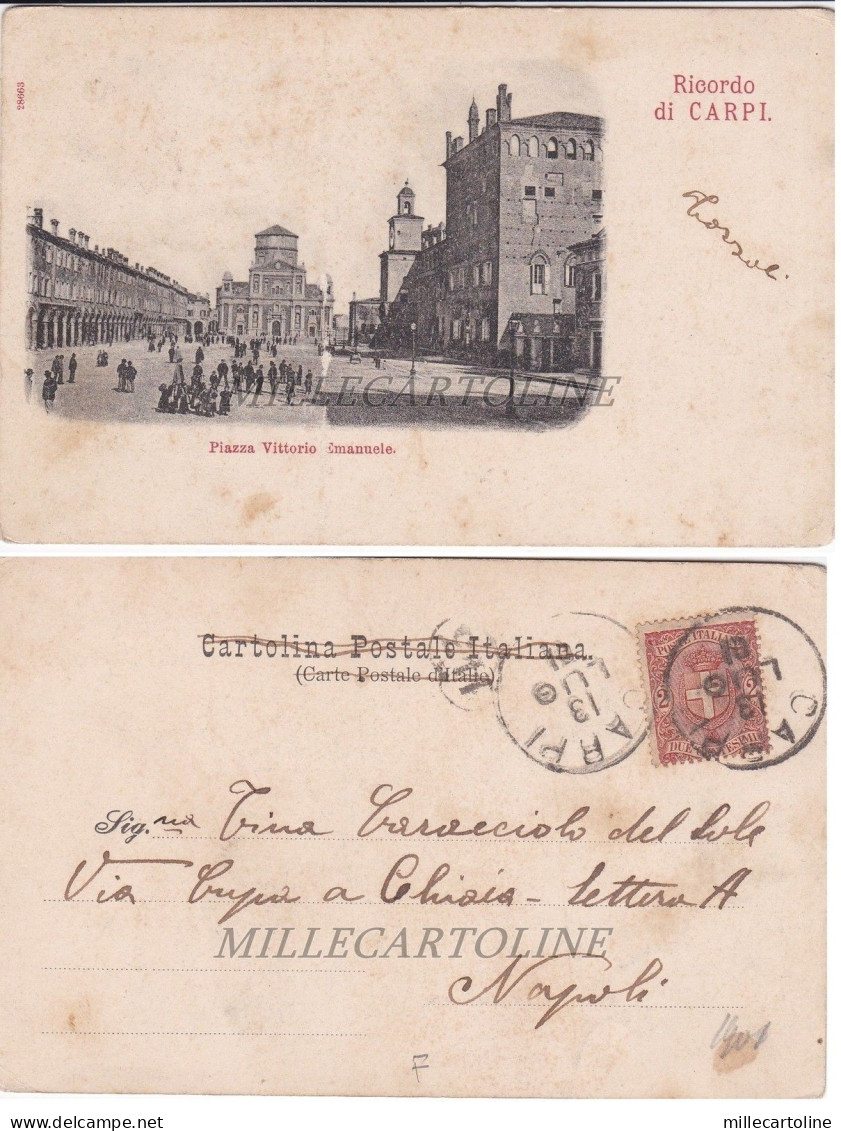 28663
Ricordo
di CARPI.
MILLECARTOLINE
Piazza Vittorio Emanuele.
Cartolina Postale Italiana.
(Carte Postale d'Italie)
POSTE ITALIANE
2 2
CARPI
13
LU
CARPI
13
Sig.na Tina Caracciolo del Sole
Via Cupa a Chiaia - lettera A
MILLECARTOLINE
Napoli
1901
F
www.delcampe.net
millecartoline